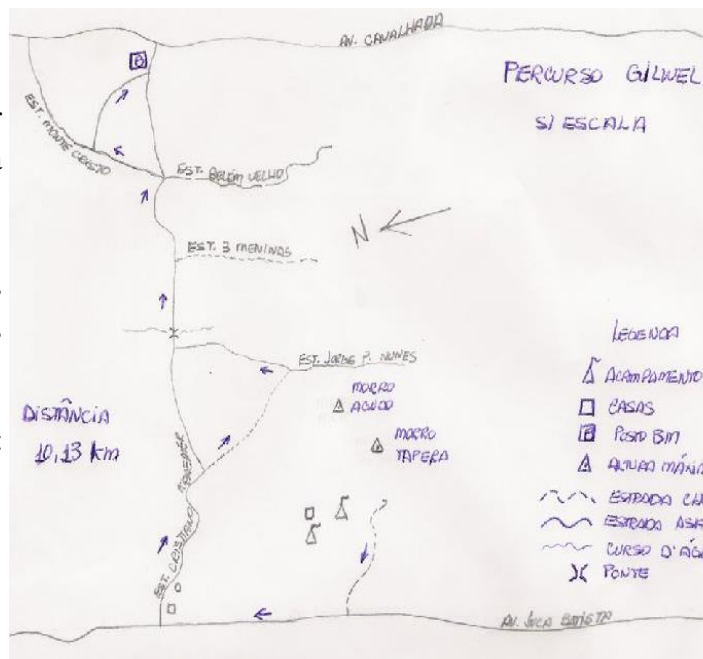 AV. CAVALHADA
PERCURSO GILWEL
S/ ESCALA
B
EST. MONTE CRISTO
EST. BELÉM VELHO
N
EST. 3 MENINAS
EST. JORGE P. NUNES
MORRO
AGUDO
MORRO
TAPERA
DISTÂNCIA
10,13 km
EST. CRISTIANO
AV. JUCA BATISTA
LEGENDA
ACAMPAMENTO
CASAS
POSTO BM
ALTURA
ESTRADA
ESTRADA
CURSO
PONTE